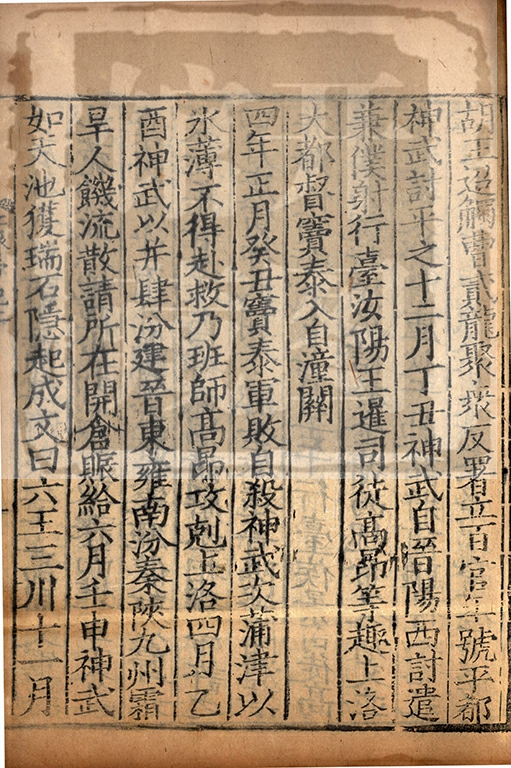 胡王迢觸曹貳龍聚衆反署立百官年號平都
神武討平之十二月丁丑神武自晉陽西討遣
兼僕射行臺汝陽王暹司徒高昂等趣上洛
大都督竇泰入自潼關
四年正月癸丑竇泰軍敗自殺神武次蒲津以
氷薄不得赴救乃班師高昂攻剋上洛四月乙
酉神武以并肆汾建晉東雍南汾秦陝九州霜
旱人饑流散請所在開倉賑給六月壬申神武
如天池獲瑞石隱起成文曰六王三川十一月